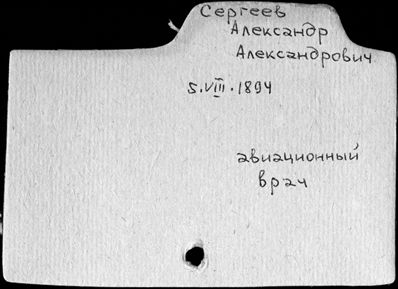 Сергеев
Александр
Александрович
5.VIII.1894
авиационный
врач